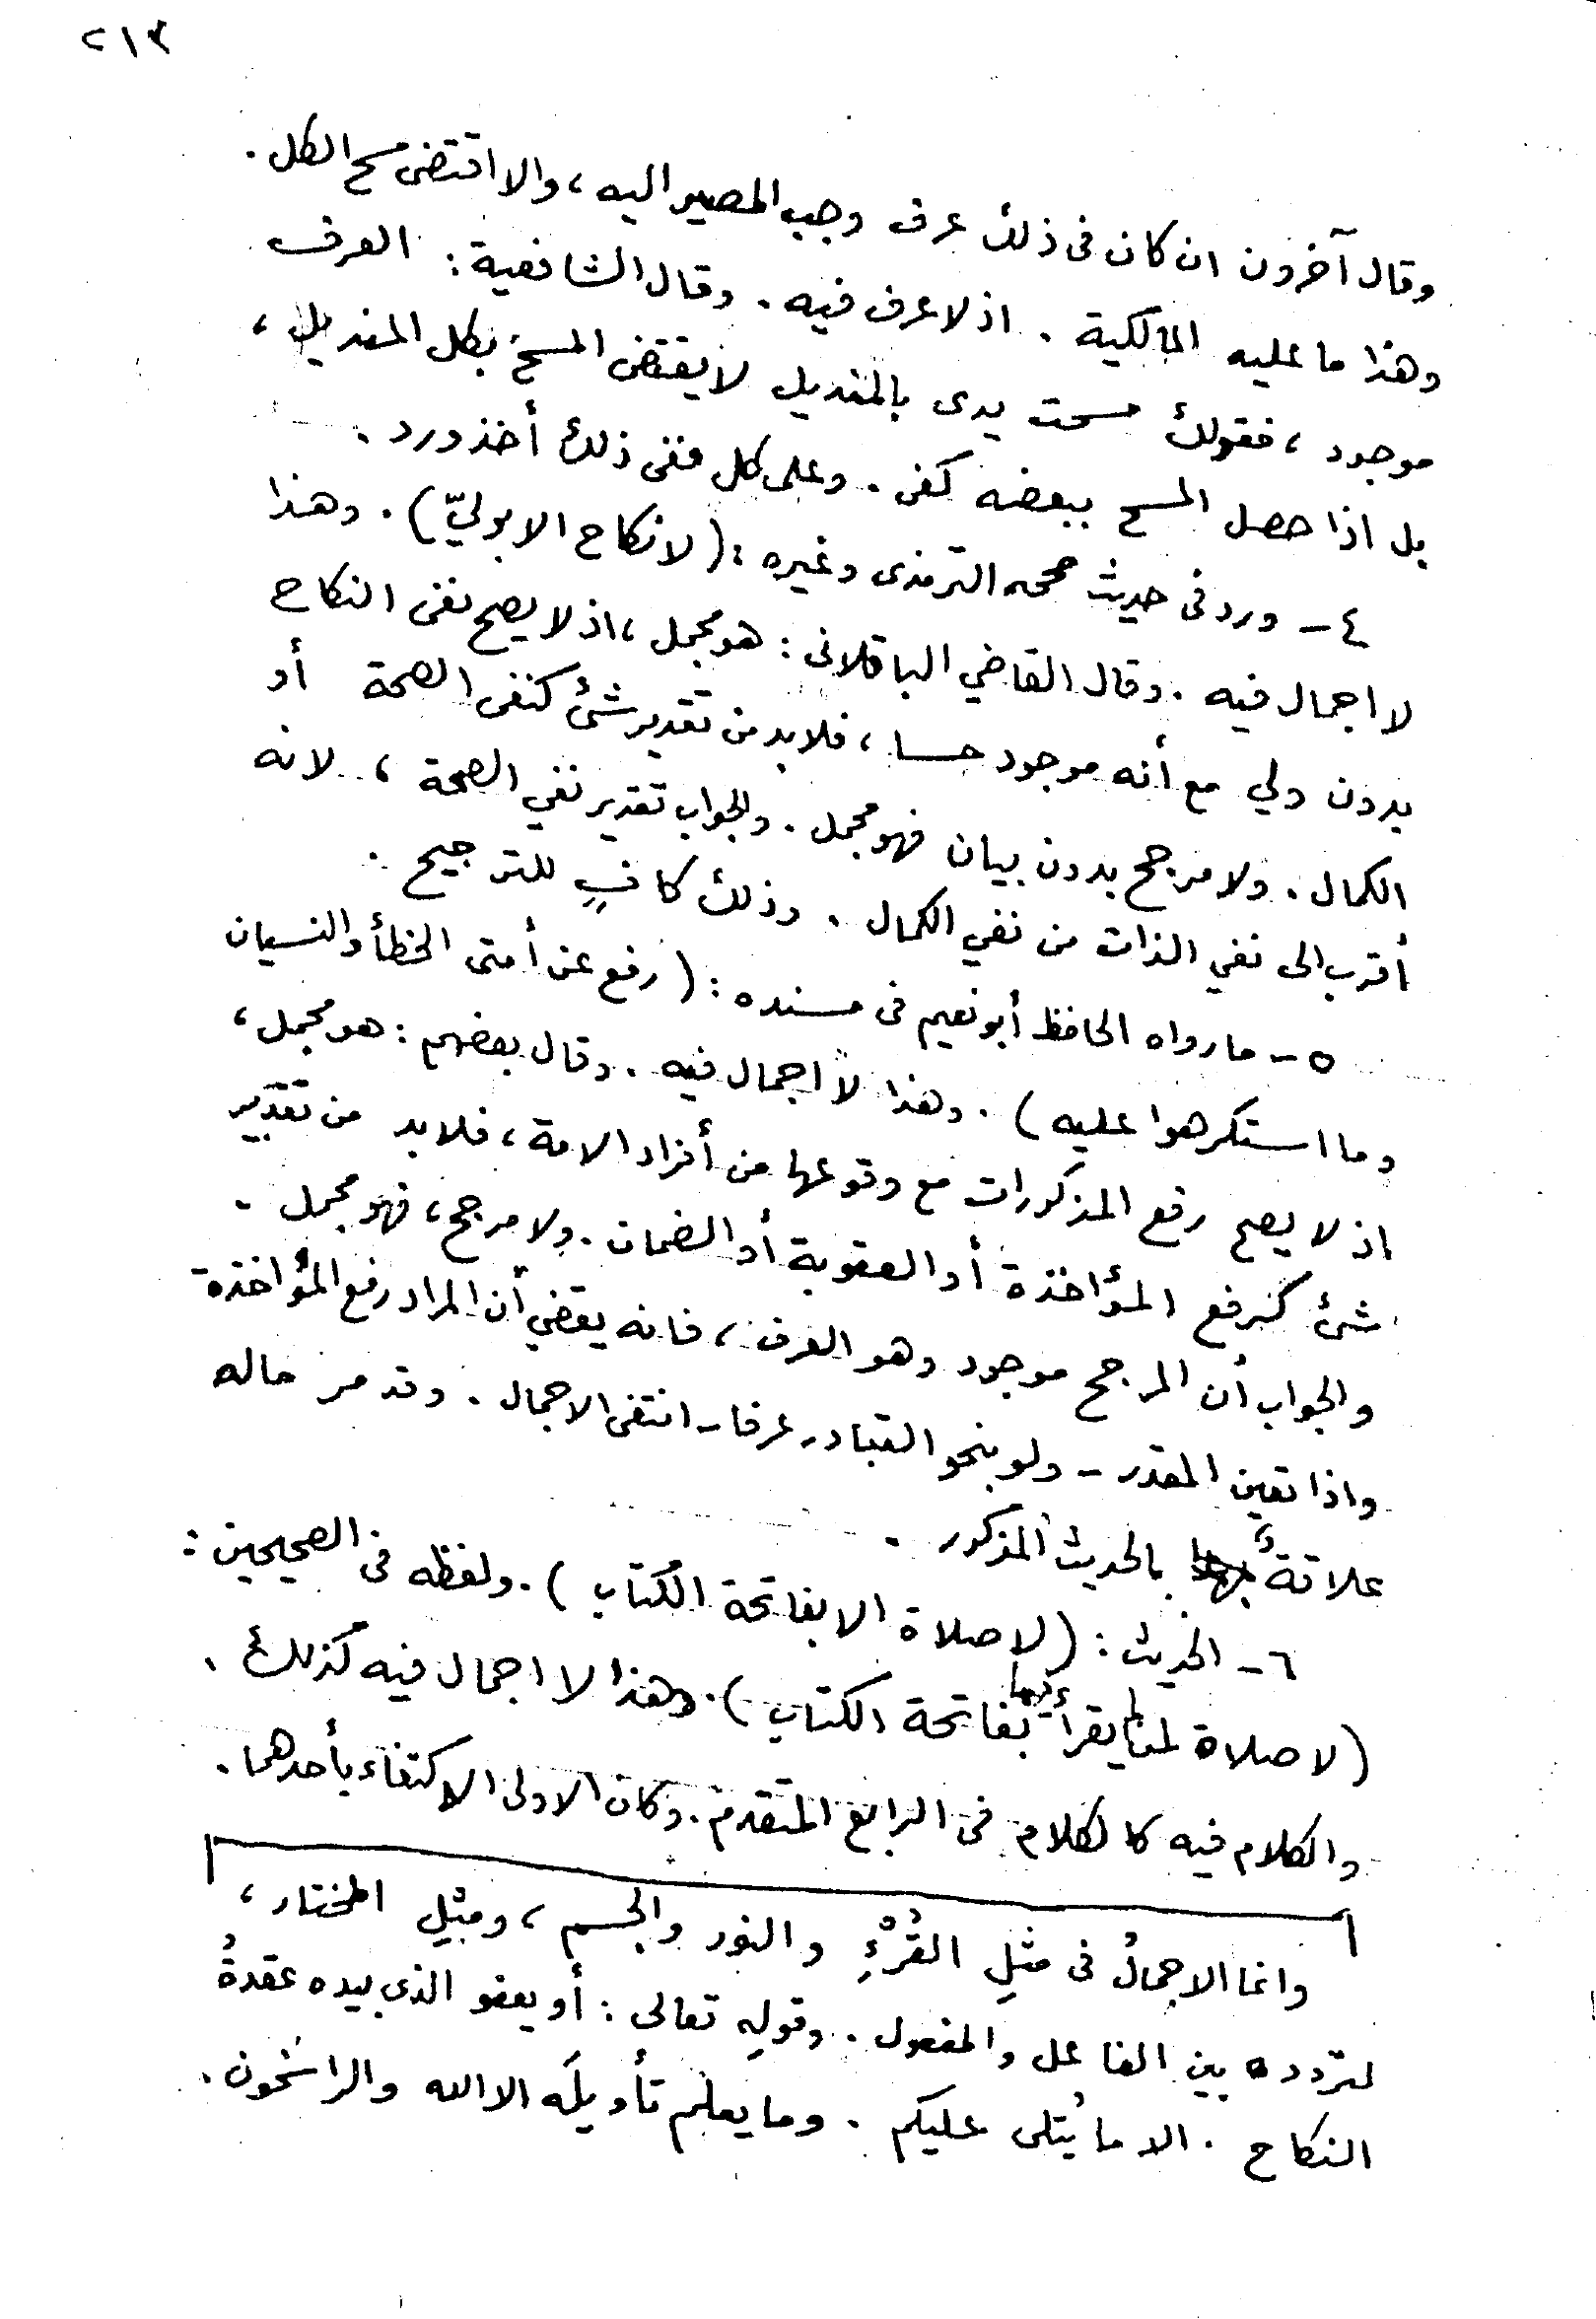 ٢١٣
وقال آخرون ان كان فى ذلك عرف وجب المصير اليه ، والا اقتضى مسح الكل .
وهذا ما عليه المالكية . اذ لا عرف فيه . وقال الشافعية : العرف
موجود ، فقولك مسحت يدى بالمنديل لا يقتضى المسح بكل المنديل ،
بل اذا حصل المسح ببعضه كفى . وعلى كل ففى ذلك أخذ ورد .
٤ – ورد فى حديث صححه الترمذى وغيره : ( لا نكاح الا بوليّ ) . وهذا
لا اجمال فيه . وقال القاضي الباقلانى : هو مجمل ، اذ لا يصح نفى النكاح
بدون ولي مع أنه موجود حسا ، فلا بد من تقدير شئ كنفى الصحة أو
الكمال . ولا مرجح بدون بيان فهو مجمل . والجواب تقدير نفي الصحة ، لانه
أقرب الى نفي الذات من نفي الكمال . وذلك كافٍ للترجيح .
٥ – ما رواه الحافظ أبو نعيم فى مسنده : ( رفع عن أمتى الخطأ والنسيان
وما استكرهوا عليه ) . وهذا لا اجمال فيه . وقال بعضهم : هو مجمل ،
اذ لا يصح رفع المذكورات مع وقوعها من أفراد الامة ، فلا بد من تقدير
شئ كرفع المؤاخذة أو العقوبة أو الضمان . ولا مرجح ، فهو مجمل .
والجواب أن المرجح موجود وهو العرف ، فانه يقضي أن المراد رفع المؤاخذة
واذا تعين المقدر – ولو بنحو التبادر عرفا – انتفى الاجمال . وقد مر ماله
علاقةٌ بالحديث المذكور .
٦ – الحديث : ( لا صلاة الا بفاتحة الكتاب ) . ولفظه فى الصحيحين :
( لا صلاة لمن لم يقرأ فيها بفاتحة الكتاب ) . وهذا لا اجمال فيه كذلك .
والكلام فيه كالكلام فى الرابع المتقدم . وكان الاولى الاكتفاء بأحدهما .
وانما الاجمالُ فى مثلِ القُرْءِ والنور والجسم ، ومثلِ المختار ،
لتردده بين الفاعل والمفعول . وقولِه تعالى : أو يعفو الذى بيده عقدةُ
النكاح . الا ما يُتلى عليكم . وما يعلم تأويلَه الا الله والراسخون .